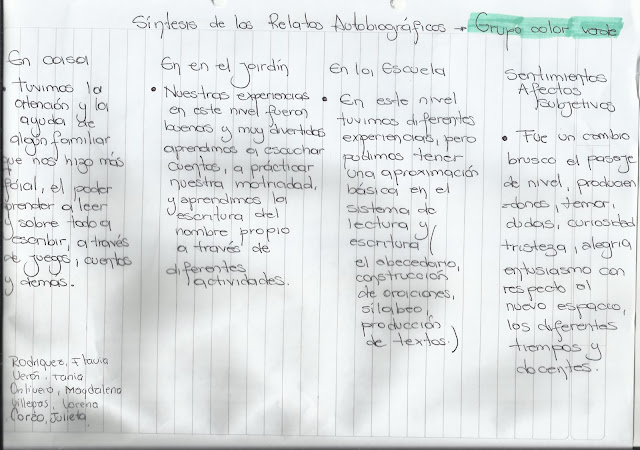 Síntesis de los Relatos Autobiográficos - Grupo color verde
En casa
• Tuvimos la
atención y la
ayuda de
algún familiar
que nos hizo más
fácial, el poder
aprender a leer
y sobre todo a
escribir, a través
de juegos, cuentos
y demas.
En en el jardín
• Nuestras experiencias
en este nivel fueron
buenas y muy divertidas
aprendimos a escuchar
cuentos, a prácticar
nuestra motricidad,
y aprendimos la
escritura del
nombre propio
a través de
diferentes
actividades.
En la, Escuela
• En este nivel
tuvimos diferentes
experiencias, pero
pudimos tener
una aproximación
básica en el
sistema de
lectura y
escritura (
el abecedario,
construcción
de oraciones,
silabeo,
producción
de textos.)
Sentimientos
Afectos
Subjetivos
• Fue un cambio
brusco el pasaje
de nivel, producien
dones, temor,
dudas, curiosidad
tristeza, alegria
entusiasmo con
respecto al
nuevo espacio,
los diferentes
tiempos y
docentes.
Rodriguez, Flavia
Verón, Tania
Ontivero, Magdalena
Villegas, Lorena
Corzo, Julieta